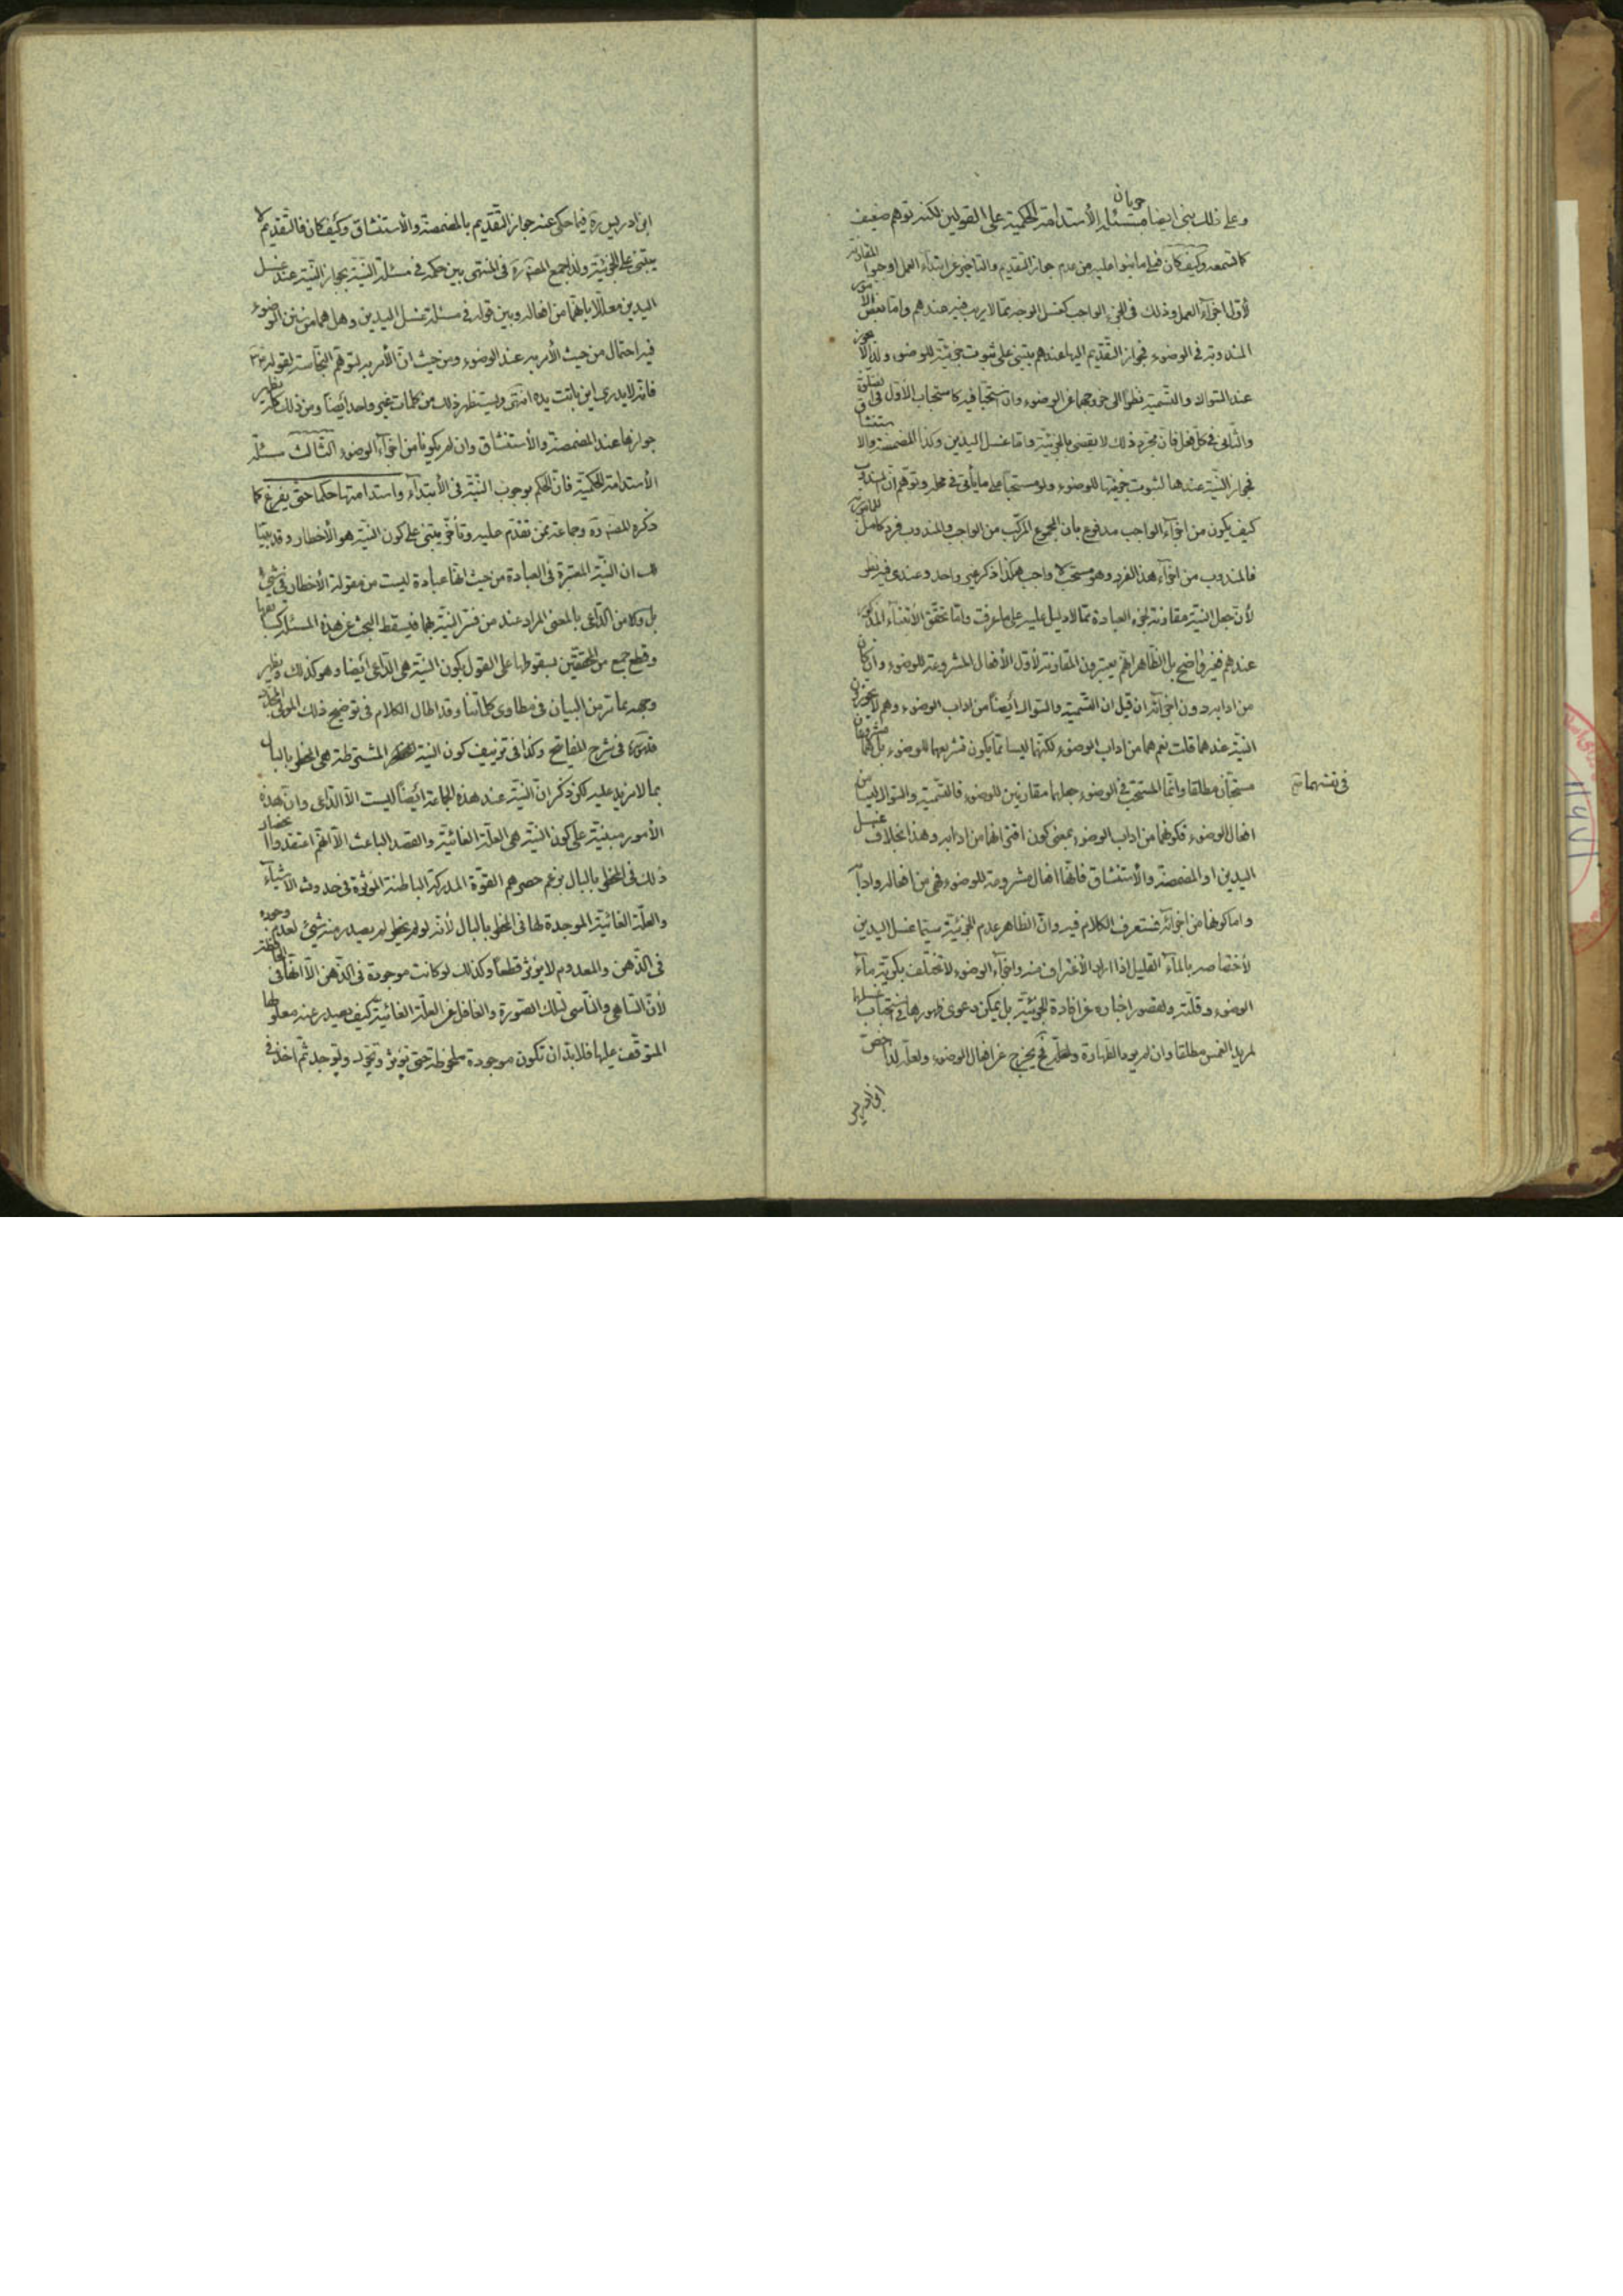 وعلى ذلك بنى ايضا جريان مسئلة الأستدامة الحكمية على القولين لكنه توهم ضعيف
كما ستسمعه وكيف كان فعلى ما بنوا عليه من عدم جواز التقديم والتاخير عن ابتداء العمل اوجبوا المقارنة
لأول اجزآء العمل وذلك في الجزء الواجب كغسل الوجه مما لا ريب فيه عندهم واما بعض الأمور
المندوبة في الوضوء فجواز التقديم اليها عندهم يبتنى على ثبوت جزئيته للوضوء ولذا لا يجوز
عند السواك والتسمية نظرا الى خروجهما عن الوضوء وان استحبا فيه كاستحباب الأول في
والثانى في كل فعل فان مجرد ذلك لا يقضى بالجزئية واما غسل اليدين وكذا المضمضة والاستنشاق
فجواز النية عندها لثبوت جزئيتها للوضوء ولو مستحبا على ما يأتى في محله وتوهم ان المندوب
كيف يكون من اجزآء الواجب مدفوع بأن المجموع المركب من الواجب والمندوب فرد كامل
فالمندوب من اجزآء هذا الفرد وهو مستحب لا واجب هكذا ذكر غير واحد وعندى فيه نظر
لأن جعل النية مقارنة لجزء العبادة مما لا دليل عليه على ما عرفت واما تحقق الأبتناء المذكور
عندهم فغير واضح بل الظاهر انهم يعتبرون المقارنة لأول الأفعال المشروعة للوضوء وان كان
من ادابه دون اجزآئه ان قيل ان التسمية والسواك أيضا من اداب الوضوء وهم لا يجوزون
النية عندهما قلت نعم هما من اداب الوضوء لكنهما ليسا مما يكون تشريعهما للوضوء بل هما مشروعان
في نفسهما
مستحبان مطلقا وانما المستحب في الوضوء جعلهما مقارنين للوضوء فالتسمية والسواك ليسا من
افعال الوضوء فكونهما من اداب الوضوء بمعنى كون اقترانهما من ادابه وهذا بخلاف غسل
اليدين او المضمضة والأستنشاق فانها افعال مشروعة للوضوء فهى من افعاله وادابه
واما كونها من اجزآئه فستعرف الكلام فيه وان الظاهر عدم الجزئية سيما غسل اليدين
لأختصاصه بالمآء القليل اذا اراد الأغتراف منه واجزآء الوضوء لا تختلف بكرية مآء
الوضوء وقلته ولقصور اخباره عن افادة الجزئية بل يمكن دعوى ظهورها في استحباب غسلها
لمريد الغمس مطلقا وان لم يرد الطهارة ولعله يخرج عن افعال الوضوء ولعله لذا خص
ابن ادريس
ابن ادريس ره فيما حكى عنه جواز التقديم بالمضمضة والأستنشاق وكيف كان فالتقديم لا
يبتنى على الجزئية ولذا جمع المصنف ره في المنتهى بين حكمه في مسئلة النية بجواز النية عند غسل
اليدين معللا بانهما من افعاله وبين قوله في مسئلة غسل اليدين وهل هما من سنن الوضوء
فيه احتمال من حيث الأمر به عند الوضوء ومن حيث ان الأمر به لتوهم النجاسة لقوله
فانه لا يدرى اين باتت يده انتهى ويستظهر ذلك من كلمات غير واحد ايضا ومن ذلك كله يظهر
جوازها عند المضمضة والأستنشاق وان لم يكونا من اجزآء الوضوء الثالث مسئلة
الأستدامة الحكمية فان الحكم بوجوب النية في الأبتدآء واستدامتها حكما حتى يفرغ كما
ذكره المصنف ره وجماعة ممن تقدم عليه وتأخر يبتنى على كون النية هو الأخطار وقد بينا
لك ان النية المعتبرة في العبادة من حيث انها عبادة ليست من مقولة الأخطار في شيئ
بل ولا من الداعى بالمعنى المراد عند من فسر النية بهما فيسقط البحث عن هذه المسئلة
وقطع جمع من المحققين بسقوطها على القول بكون النية هى الداعى أيضا وهو كذلك ويظهر
وجهه مما مر من البيان في مطاوى كلماتنا وقد اطال الكلام في توضيح ذلك المولى
قدس سره في شرح المفاتيح وكذا في تزييف كون النية المشروطة هى المخطر بالبال
بما لا مزيد عليه لكن ذكر ان النية عند هذه الجماعة أيضا ليست الا الداعى وان هذه
الأمور مبنية على كون النية هى العلة الغائية والقصد الباعث الا انهم اعتقدوا انحصار
ذلك في المخطر بالبال بزعم حصرهم القوة المدركة الباطنة المؤثرة في حدوث الأشيآء
والعلة الغائية الموجدة لها في المخطر بالبال لأنه لو لم يخطر لم يصدر منه شيئ لعدم وجوده
في الذهن والمعدوم لا يؤثر قطعا وكذلك لو كانت موجودة في الذهن الا انها في الحافظة
لأن الساهى والناسى لتلك الصورة والغافل عن العلة الغائية كيف يصدر عنه معلولها
المتوقف عليها فلا بد ان تكون موجودة ملحوظة حتى تؤثر وتوجد ثم اخذ في